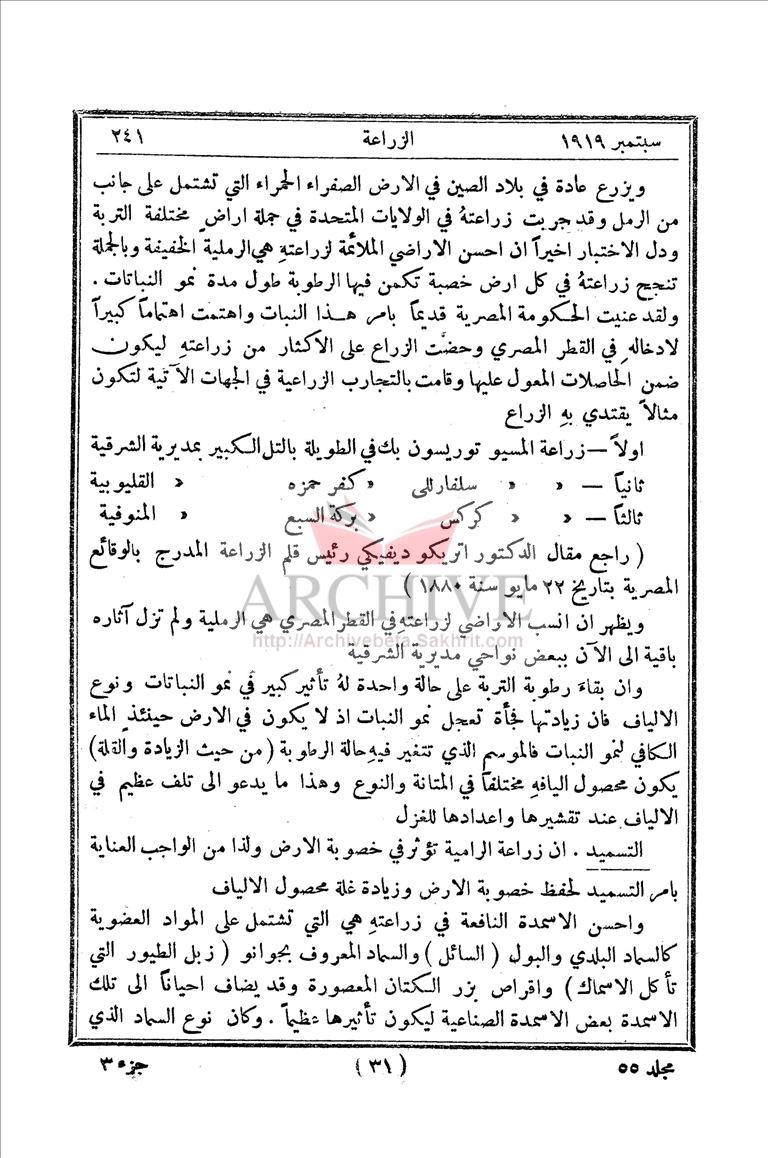 سبتمبر ١٩١٩ الزراعة ٢٤١
ويزرع عادة في بلاد الصين في الارض الصفراء الحمراء التي تشتمل على جانب
من الرمل وقد جربت زراعتهُ في الولايات المتحدة في جملة اراضٍ مختلفة التربة
ودل الاختبار اخيراً ان احسن الاراضي الملائمة لزراعتهِ هي الرملية الخفيفة وبالجملة
تنجح زراعتهُ في كل ارض خصبة تكمن فيها الرطوبة طول مدة نمو النباتات .
ولقد عنيت الحكومة المصرية قديماً بامر هذا النبات واهتمت اهتماماً كبيراً
لادخالهِ في القطر المصري وحضَّت الزراع على الاكثار من زراعتهِ ليكون
ضمن الحاصلات المعول عليها وقامت بالتجارب الزراعية في الجهات الآتية لتكون
مثالاً يقتدي بهِ الزراع
اولاً — زراعة المسيو توريسون بك في الطويلة بالتل الكبير بمديرية الشرقية
ثانياً — » » سلفارللى » كفر حمزه » القليوبية
ثالثاً — » » كركس » بركة السبع » المنوفية
( راجع مقال الدكتور اتريكو ديفيكي رئيس قلم الزراعة المدرج بالوقائع
المصرية بتاريخ ٢٢ مايو سنة ١٨٨٠ )
ARCHIVE
ويظهر ان انسب الاراضي لزراعتهِ في القطر المصري هي الرملية ولم تزل آثاره
http://Archivebeta.Sakhrit.com
باقية الى الآن ببعض نواحي مديرية الشرقية
وان بقاءَ رطوبة التربة على حالة واحدة لهُ تأثير كبير في نمو النباتات ونوع
الالياف فان زيادتها فجأة تعجل نمو النبات اذ لا يكون في الارض حينئذٍ الماء
الكافي لنمو النبات فالموسم الذي تتغير فيهِ حالة الرطوبة ( من حيث الزيادة والقلة )
يكون محصول اليافهِ مختلفاً في المتانة والنوع وهذا ما يدعو الى تلف عظيم في
الالياف عند تقشيرها واعدادها للغزل
التسميد . ان زراعة الرامية تؤثر في خصوبة الارض ولذا من الواجب العناية
بامر التسميد لحفظ خصوبة الارض وزيادة غلة محصول الالياف
واحسن الاسمدة النافعة في زراعتهِ هي التي تشتمل على المواد العضوية
كالسماد البلدي والبول ( السائل ) والسماد المعروف بجوانو ( زبل الطيور التي
تأكل الاسماك ) واقراص بزر الكتان المعصورة وقد يضاف احياناً الى تلك
الاسمدة بعض الاسمدة الصناعية ليكون تأثيرها عظيماً . وكان نوع السماد الذي
مجلد ٥٥ ( ٣١ ) جزء ٣